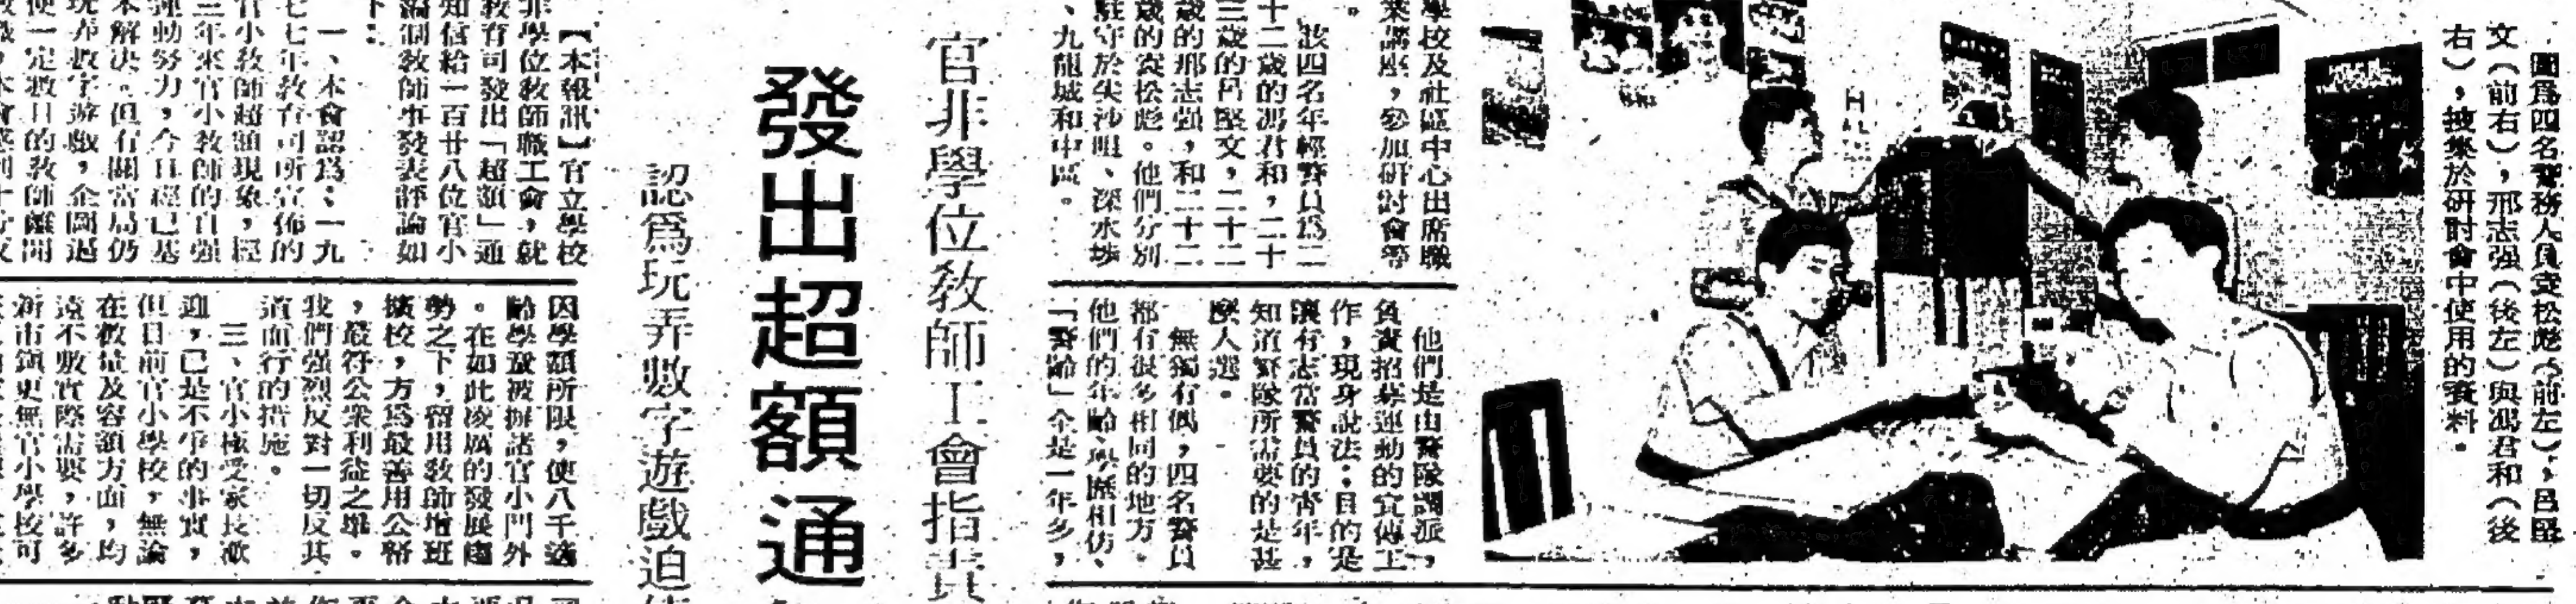 圖爲四名警務人員袁松彪(前左),呂堅
文(前右),邢志强(後左)與馮君和(後
右),搜集於研討會中使用的資料。
學校及社區中心出席職
業講座,參加研討會等
。
該四名年輕警員爲二
十二歲的馮君和,二十
三歲的呂堅文,二十二
歲的邢志强,和二十二
歲的袁松彪。他們分別
駐守於尖沙咀、深水埗
、九龍城和中區。
他們是由警隊調派,
負責招募運動的宣傳工
作,現身說法;目的是
讓有志當警員的靑年,
知道警隊所需要的是甚
麽人選。
無獨有偶,四名警員
都有很多相同的地方。
他們的年齡、學歷相仿、
「警齡」全是一年多,
官非學位敎師工會指責
發出超額通
認爲玩弄數字遊戲迫
【本報訊】官立學校
非學位敎師職工會,就
敎育司發出「超額」通
知信給一百廿八位官小
敎師事發表評論如
下:
一、本會認爲:一九
七七年敎育司所宣佈的
官小敎師超額現象,經
三年來官小敎師的自强
運動努力,今日經已基
本解決。但有關當局仍
玩弄數字遊戲,企圖過
使一定數目的敎師離開
因學額所限,使八千適
齡學童被摒諸官小門外
。在如此凌厲的發展趨
勢之下,留用敎師增班
擴校,方爲最善用公帑
,最符公衆利益之舉。
我們强烈反對一切反其
道而行的措施。
三、官小極受家長歡
迎,已是不爭的事實,
但目前官小學校,無論
在數量及容額方面,均
遠不敷實際需要,許多
新市鎭更無官小學校可